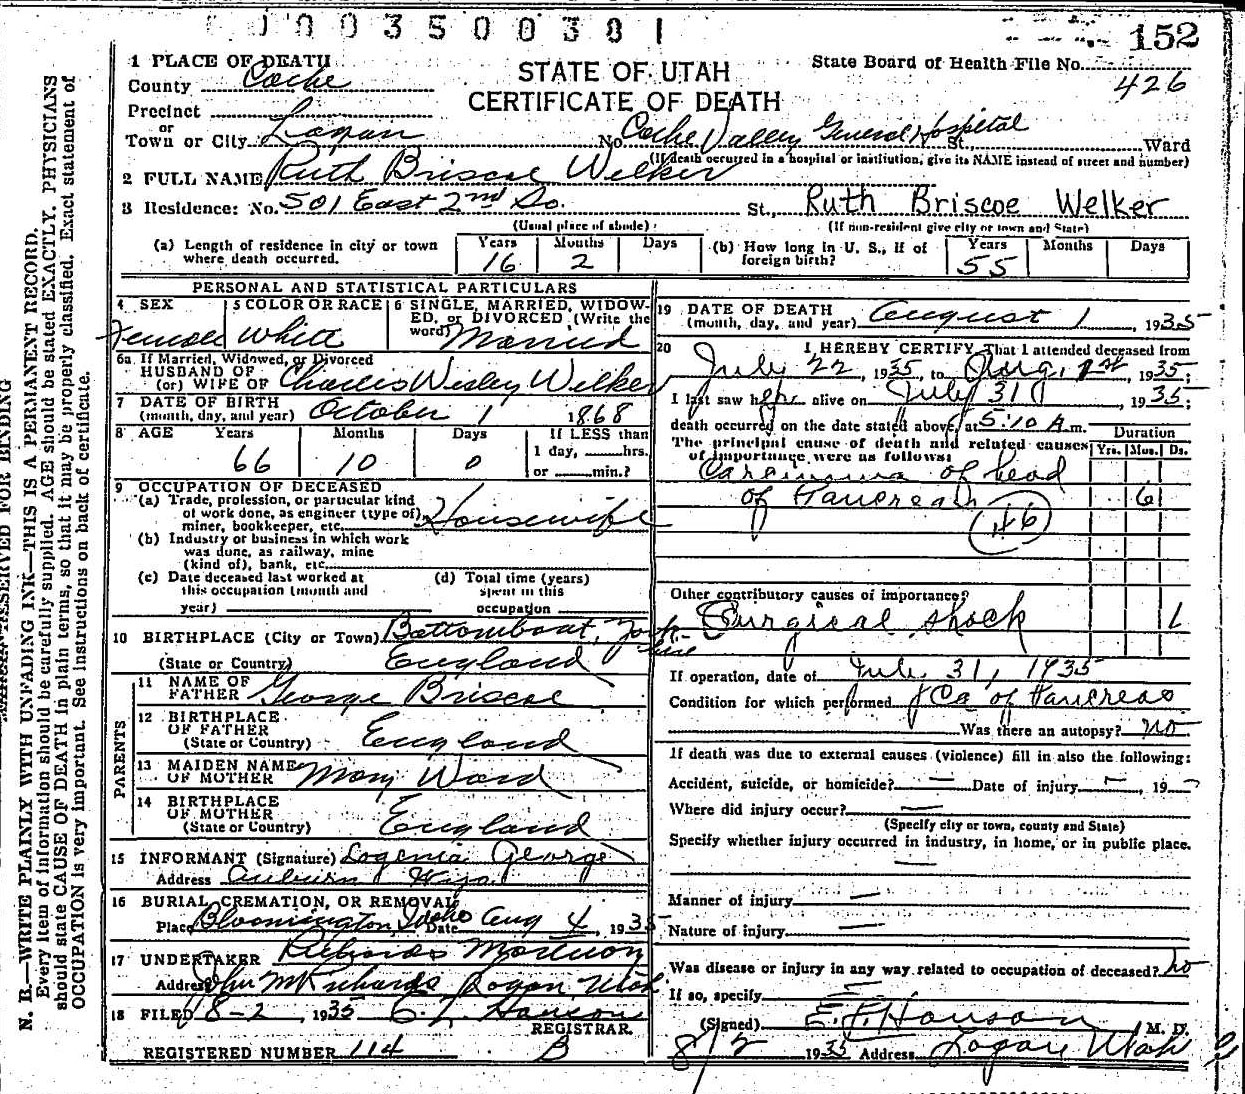 003500301
152
1 PLACE OF DEATH
County Cache
STATE OF UTAH
CERTIFICATE OF DEATH
State Board of Health File No.
426
Precinct
or
Town or City Logan No. Cache Valley General Hospital St., Ward
(If death occurred in a hospital or institution, give its NAME instead of street and number)
2 FULL NAME Ruth Briscoe Welker
3 Residence: No. 501 East 2nd So. St., Ruth Briscoe Welker
(Usual place of abode) (If non-resident give city or town and State)
(a) Length of residence in city or town where death occurred. Years 16 Months 2 Days
(b) How long in U. S., if of foreign birth? Years 55 Months Days
PERSONAL AND STATISTICAL PARTICULARS
4 SEX Female
5 COLOR OR RACE White
6 SINGLE, MARRIED, WIDOWED, or DIVORCED (Write the word) Married
6a If Married, Widowed, or Divorced
HUSBAND OF
(or) WIFE OF Charles Wesley Welker
7 DATE OF BIRTH
(month, day, and year) October 1 1868
8 AGE Years 66 Months 10 Days 0 If LESS than 1 day, hrs. or min.?
9 OCCUPATION OF DECEASED
(a) Trade, profession, or particular kind
of work done, as engineer (type of)
miner, bookkeeper, etc. Housewife
(b) Industry or business in which work
was done, as railway, mine
(kind of), bank, etc.
(c) Date deceased last worked at
this occupation (month and
year)
(d) Total time (years)
spent in this
occupation
10 BIRTHPLACE (City or Town) Bottomboat, Yorkshire
(State or Country) England
PARENTS
11 NAME OF
FATHER George Briscoe
12 BIRTHPLACE
OF FATHER
(State or Country) England
13 MAIDEN NAME
OF MOTHER Mary Ward
14 BIRTHPLACE
OF MOTHER
(State or Country) England
15 INFORMANT (Signature) Logenia George
Address Auburn Wyo.
16 BURIAL, CREMATION, OR REMOVAL
Place Bloomington, Idaho Date Aug 4, 1935
17 UNDERTAKER Richards Mortuary
Address John M Richards Logan Utah
18 FILED 8-2, 1935
REGISTRAR
REGISTERED NUMBER 114 B
19 DATE OF DEATH
(month, day, and year) August 1, 1935
20 I HEREBY CERTIFY, That I attended deceased from
July 22, 1935, to Aug. 1st, 1935;
I last saw her alive on July 31, 1935;
death occurred on the date stated above, at 5:10 A.m.
The principal cause of death and related causes
of importance were as follows:
Duration
Yrs. Mos. Ds.
Carcinoma of head
of Pancreas 6
46
Other contributory causes of importance?
Surgical shock 1
If operation, date of July 31, 1935
Condition for which performed Ca of Pancreas
Was there an autopsy? no
If death was due to external causes (violence) fill in also the following:
Accident, suicide, or homicide? — Date of injury —, 19
Where did injury occur? —
(Specify city or town, county and State)
Specify whether injury occurred in industry, in home, or in public place.
—
Manner of injury —
Nature of injury —
Was disease or injury in any way related to occupation of deceased? no
If so, specify —
(Signed) M. D.
8/2 1935 Address Logan Utah
RESERVED FOR BINDING
N. B.—WRITE PLAINLY WITH UNFADING INK—THIS IS A PERMANENT RECORD.
Every item of information should be carefully supplied. AGE should be stated EXACTLY. PHYSICIANS
should state CAUSE OF DEATH in plain terms, so that it may be properly classified. Exact statement of
OCCUPATION is very important. See instructions on back of certificate.